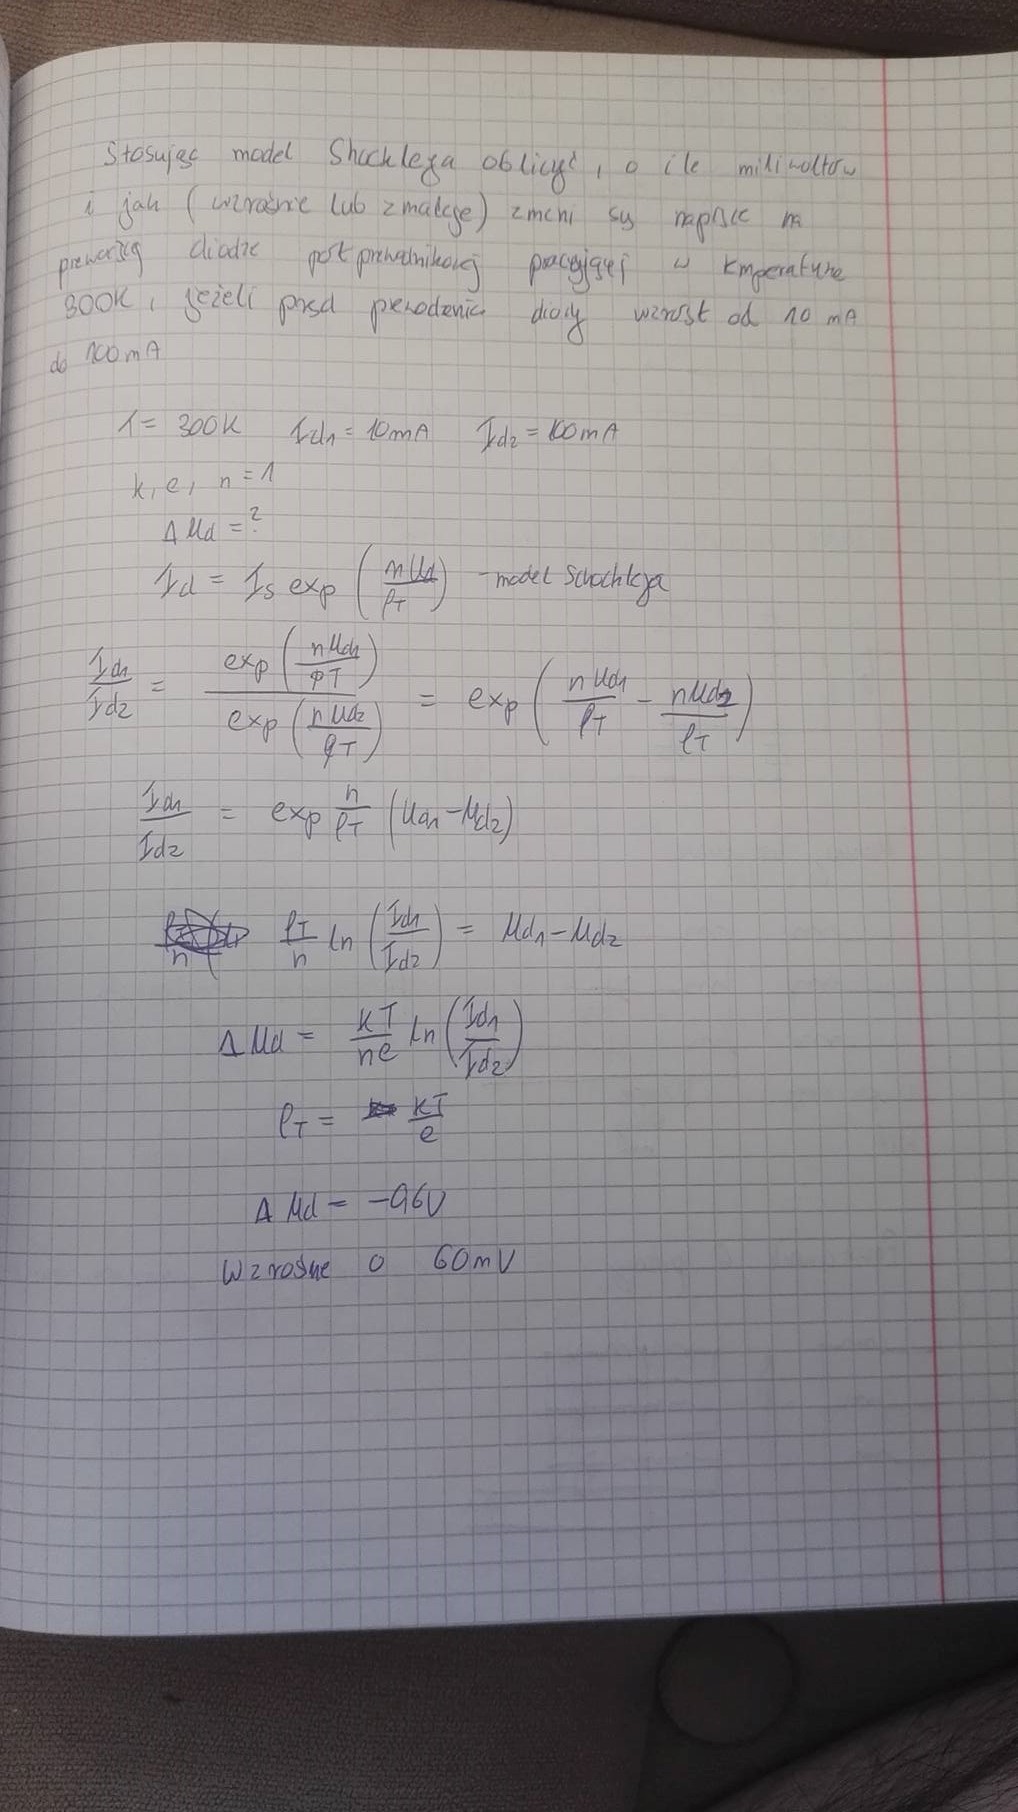 Stosując model Shocklega oblicyć, o ile miliwoltów
i jak (wzrośnie lub zmaleje) zmeni sy napisce na
diodze pracującej w temperature
300K, jeżeli prsd diody wzrost od 10 mA
do 100mA
T = 300K Id1 = 10mA Id2 = 100mA
k, e, n = 1
ΔUd = ?
Id = Is exp (nUd/φT) - model Schockleja
Id1/Id2 = exp (nUd1/φT) / exp (nUd2/φT) = exp (nUd1/φT - nUd2/φT)
Id1/Id2 = exp n/φT (Ud1 - Ud2)
φT/n ln (Id1/Id2) = Ud1 - Ud2
ΔUd = kT/ne ln (Id1/Id2)
φT = kT/e
ΔUd = -0,6V
Wzrośne o 60mV